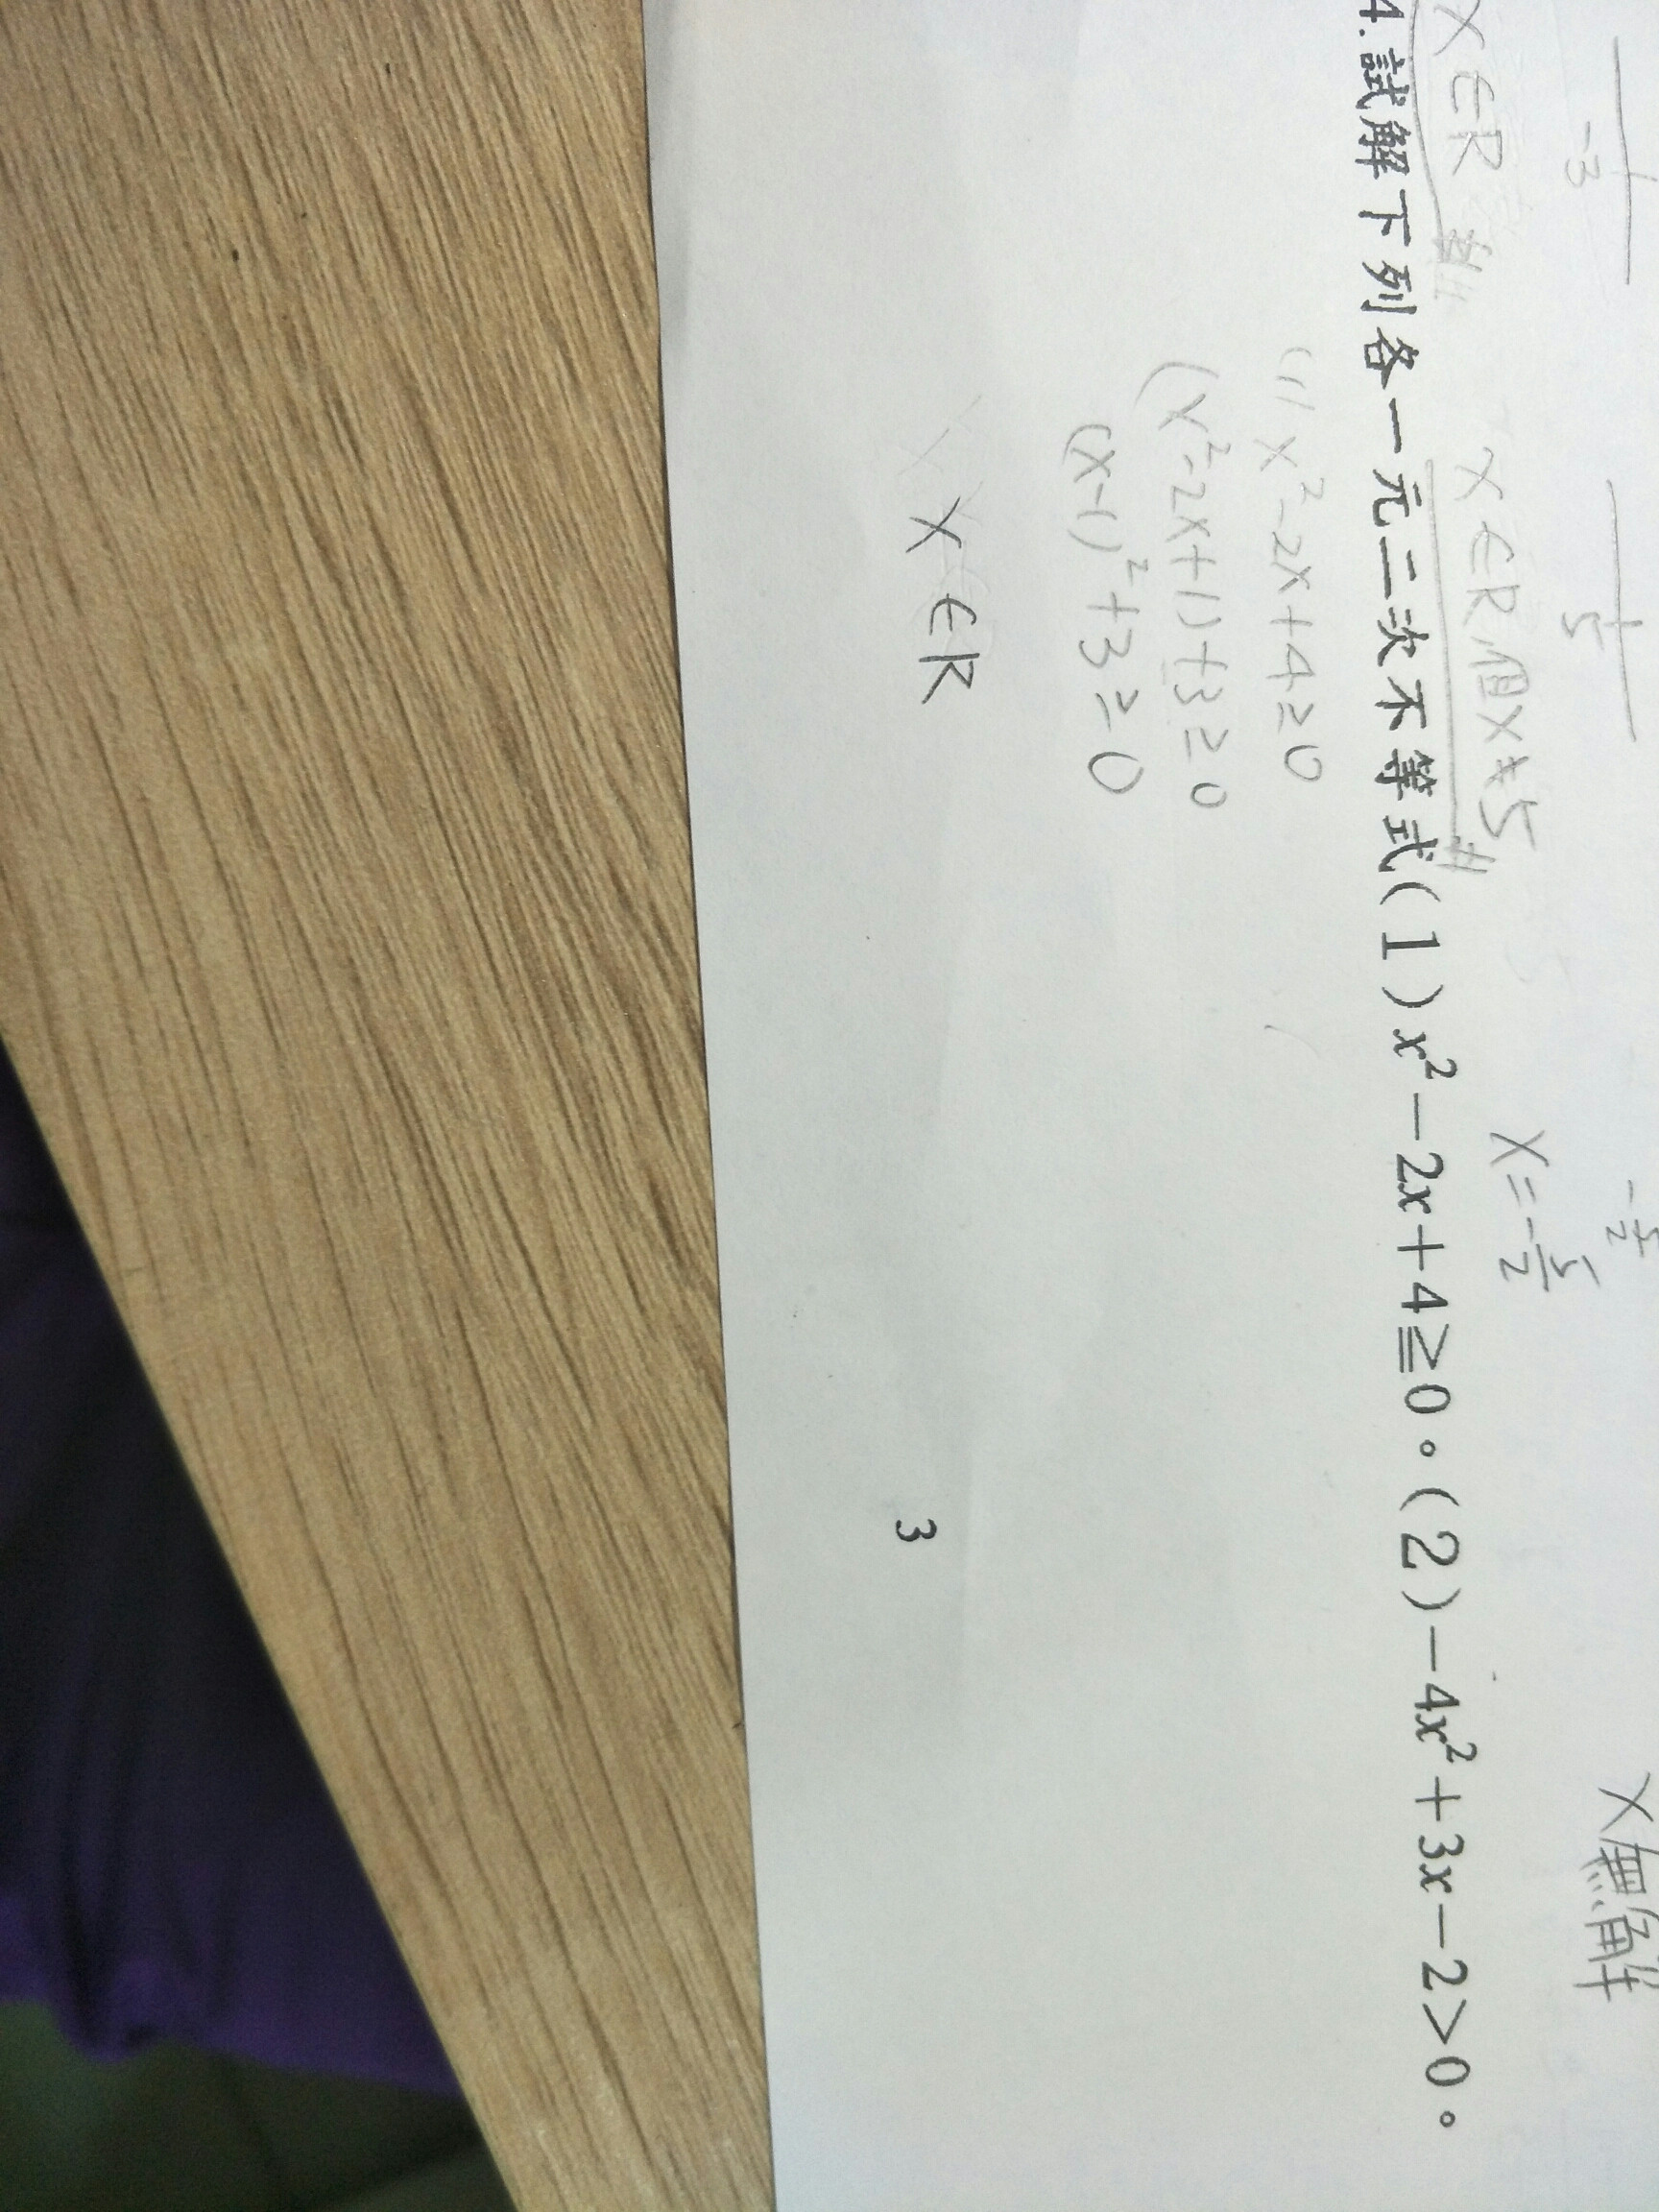 -3
5
-5/2
X無解
X∈R
X∈R,但X≠5
X=-5/2
4.試解下列各一元二次不等式(1)x²-2x+4≧0。(2)-4x²+3x-2>0。
(1) x²-2x+4≥0
(x²-2x+1)+3≥0
(x-1)²+3≥0
X∈R
3